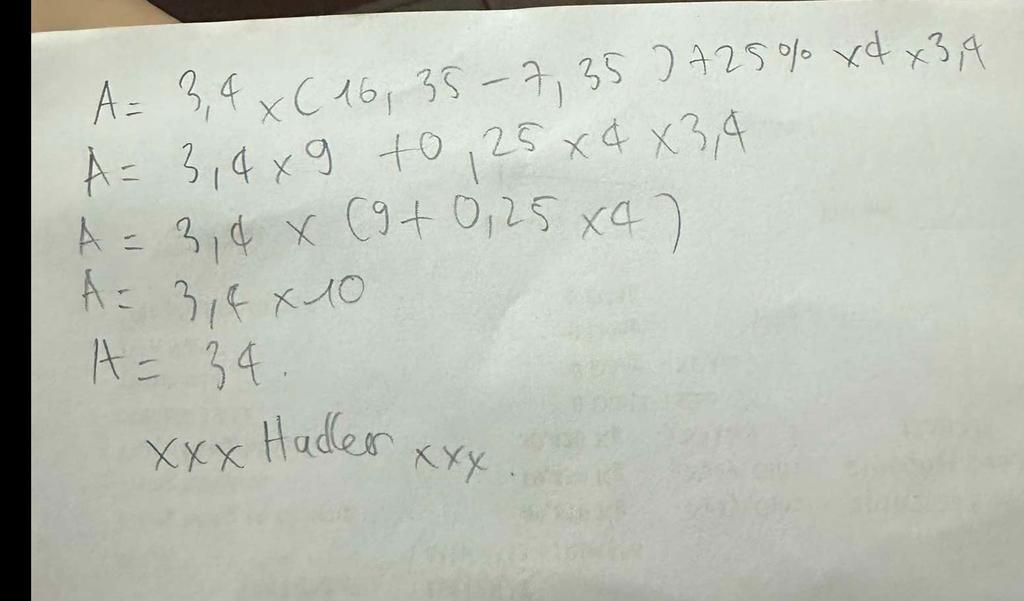 A= 3,4 x ( 16, 35 - 7, 35 ) +25% x4 x3,4
A= 3,4 x 9 +0,25 x 4 x 3,4
A = 3,4 x (9+ 0,25 x4 )
A= 3,4 x 10
A= 34.
xxx Hadler xxx.